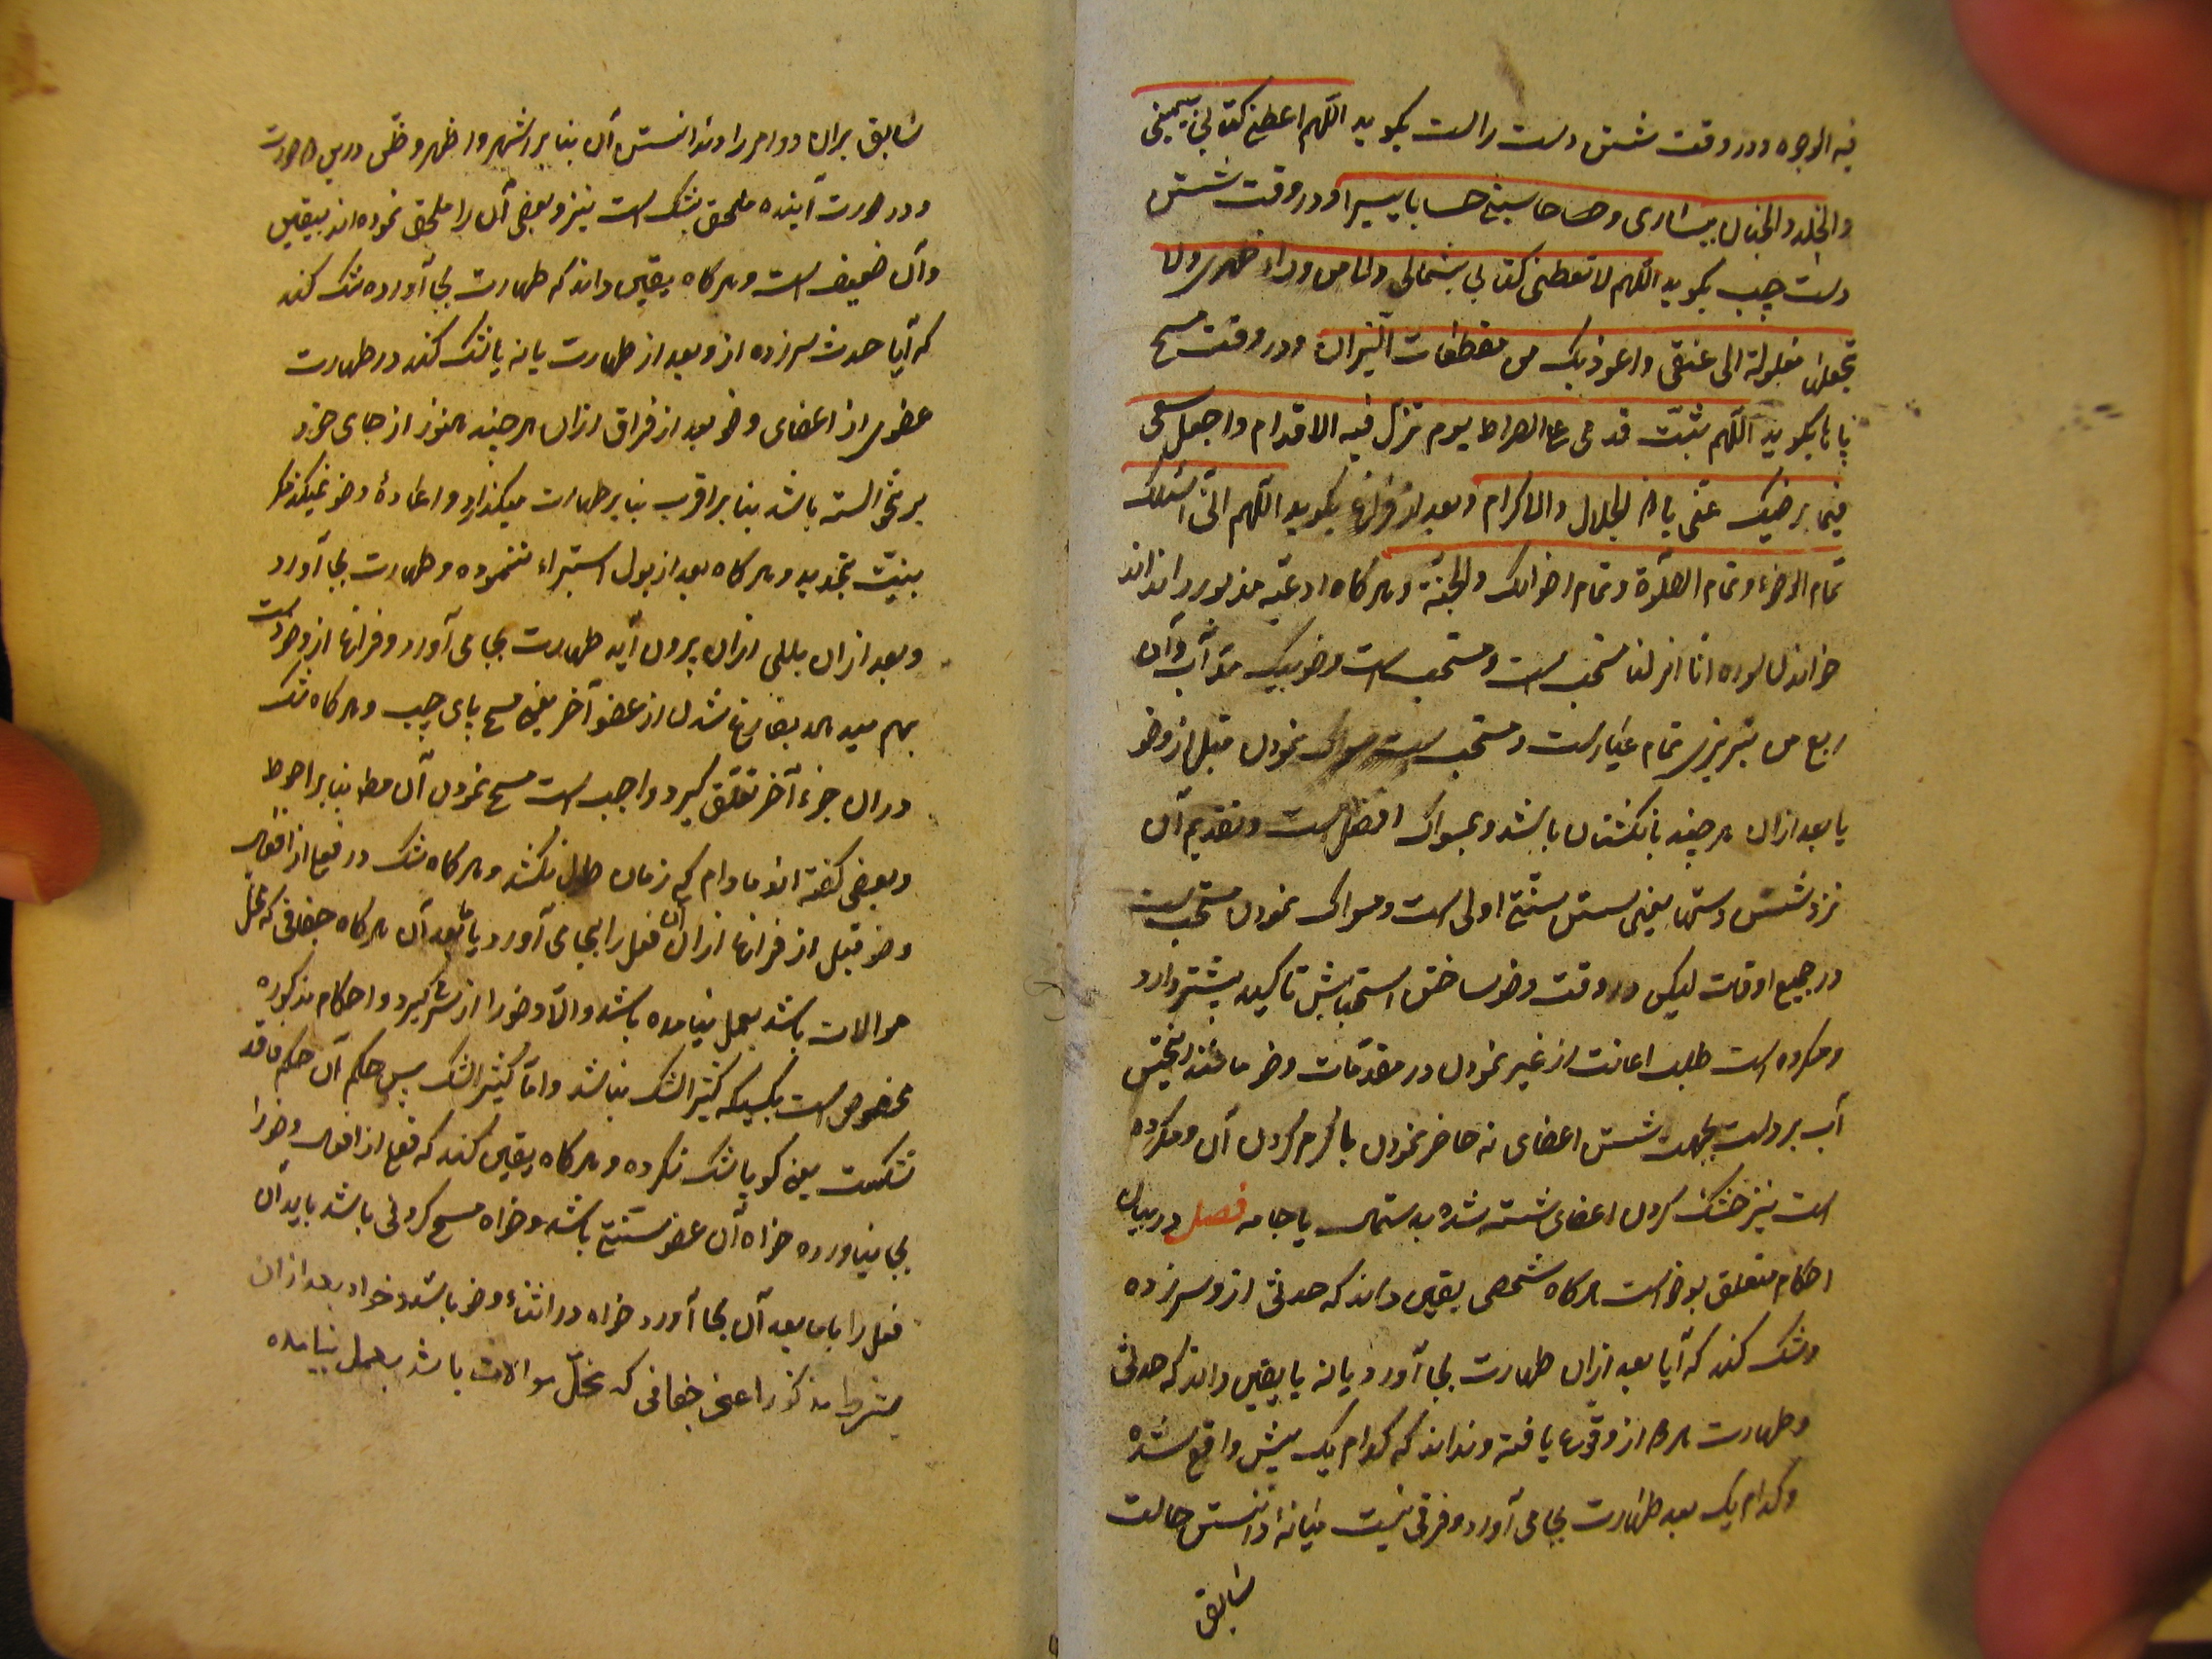 فیه الوجوه و در وقت شستن دست راست بکوید اللهم اعطنی کتابی بیمینی
والخلد و الجنان بیساری و حاسبنی حسابا یسیرا و در وقت شستن
دست چپ بکوید اللهم لا تعطنی کتابی بشمالی ولا من وراء ظهری ولا
تجعلها مغلولة الی عنقی و اعوذ بک من مقطعات النیران و در وقت مسح
پاها بکوید اللهم ثبت قدمی علی الصراط یوم تزل فیه الاقدام واجعل سعی
فیما یرضیک عنی یا ذا الجلال والاکرام و بعد از فراغ بکوید اللهم انی اسئلک
تمام الوضوء و تمام الصلوة و تمام رضوانک والجنة و هرکاه ادعیه مزبوره را نداند
خواندن سوره انا انزلنا مستحب است و مستحب است وضو بیک مد آب و آن
ربع من تبریزی تمام عیار است و مستحب است مسواک نمودن قبل از وضو
یا بعد از آن هر چند بانکشتان باشد و بمسواک افضل است و تقدیم آن
نزد شستن دستها یعنی شستن سنتی اولی است و مسواک نمودن مستحب است
در جمیع اوقات لیکن در وقت وضو ساختن استحبابش تاکید بیشتر دارد
و مکروه است طلب اعانت از غیر نمودن در مقدمات وضو مانند ریختن
آب بر دست بجهت شستن اعضای نه حاضر نمودن یا کرم کردن آن و مکروه
است نیز خشک کردن اعضای شسته شده بدستمال یا جامه فصل در بیان
احکام متعلق بوضو است هرکاه شخصی یقین داند که حدثی از و سر زده
و شک کند که آیا بعد از آن طهارت بجا آورد یا نه یا یقین داند که حدثی
و طهارت هر دو از و وقوع یافته و نداند که کدام یک پیش واقع شده
و کدام یک بعد طهارت بجا می آورد و فرقی نیست میانهٔ دانستن حالت
سابق
سابق بر آن دو امر را و ندانستن آن بنا بر اشهر و اظهر و ظن درین صورت
و در صورت آینده ملحق بشک است نیز و بعضی آن را ملحق نموده اند بیقین
و آن ضعیف است و هرکاه یقین داند که طهارت بجا آورده شک کند
که آیا حدث سر زده از و بعد از طهارت یا نه یا شک کند در طهارت
عضوی از اعضای وضو بعد از فراق از آن هر چند هنوز از جای خود
بر نخواسته باشد بنا بر اقرب بنا بر طهارت میکذارد و اعادهٔ وضو نمیکند مکر
بنیت تجدید و هرکاه بعد از بول استبراء ننموده و طهارت بجا آورد
و بعد از آن بللی از آن بیرون آید طهارت بجا می آورد و فراغ از وضو دست
بهم میدهد بفارغ شدن از عضو آخر یعنی مسح پای چپ و هرکاه شک
در آن جزء آخر تعلق کیرد واجب است مسح نمودن آن مطـ بنا بر احوط
و بعضی کفته اند مادام که زمان طول نکشد و هرکاه شک در فعلی از افعال
وضو قبل از فراغ از آن آن فعل را بجا می آورد با ما بعد آن هرکاه جفافی که مخل
موالات باشد بعمل نیامده باشد و الا وضو را از سر کیرد و احکام مذکوره
مخصوص است بکسیکه کثیر الشک نباشد و اما کثیر الشک پس حکم آن حکم فاقد
شکست یعنی کویا شک نکرده و هرکاه یقین کند که فعلی از افعال وضو را
بجا نیاورده خواه آن عضو شستنی باشد و خواه مسح کردنی باشد باید آن
فعل را با ما بعد آن بجا آورد خواه در اثناء وضو باشد و خواه بعد از آن
بشرط مذکور اعنی جفافی که مخل موالات باشد بعمل نیامده